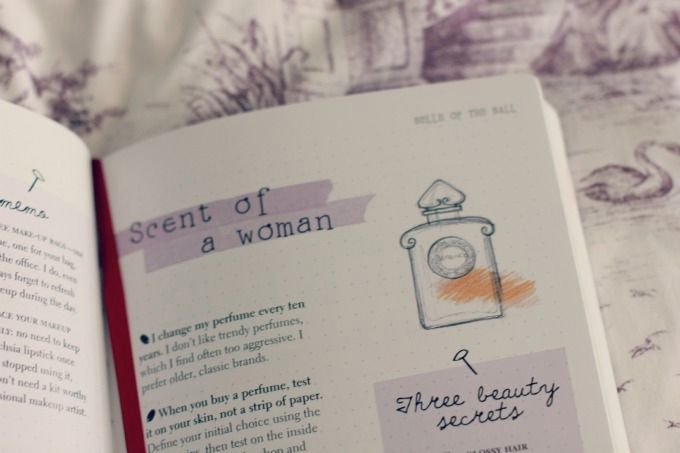 memo
MAKE-UP BAGS—one
one for your bag,
the office. I do, even
ays forget to refresh
eup during the day.
ACE YOUR MAKEUP
LY: no need to keep
chsia lipstick once
stopped using it,
n't need a kit worthy
sional makeup artist.
BELLE OF THE BALL
Scent of
a woman
I change my perfume every ten
years. I don't like trendy perfumes,
which I find often too aggressive. I
prefer older, classic brands.
When you buy a perfume, test
it on your skin, not a strip of paper.
Define your initial choice using the
then test on the inside
and
Three beauty
secrets
GLOSSY HAIR